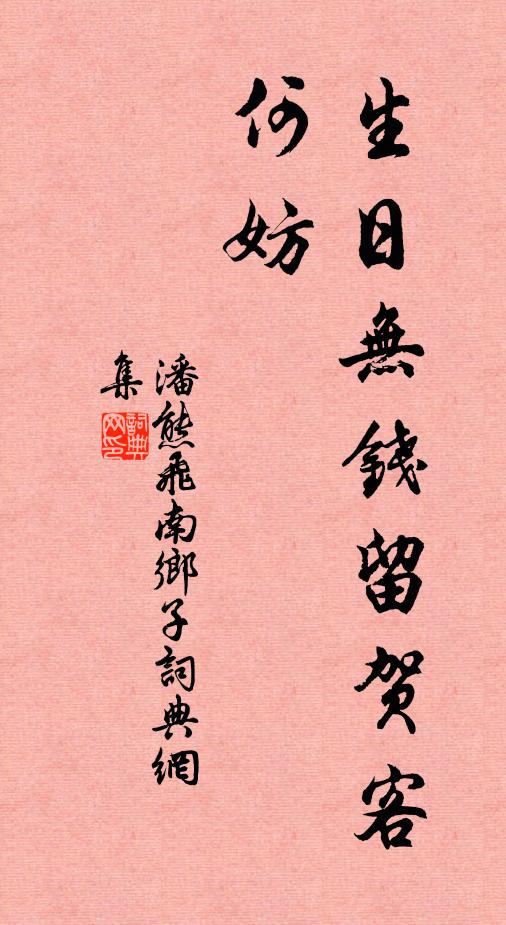 生日無錢留賀客
何妨
潘熊飛南鄉子詞典網
集
詞典
网印